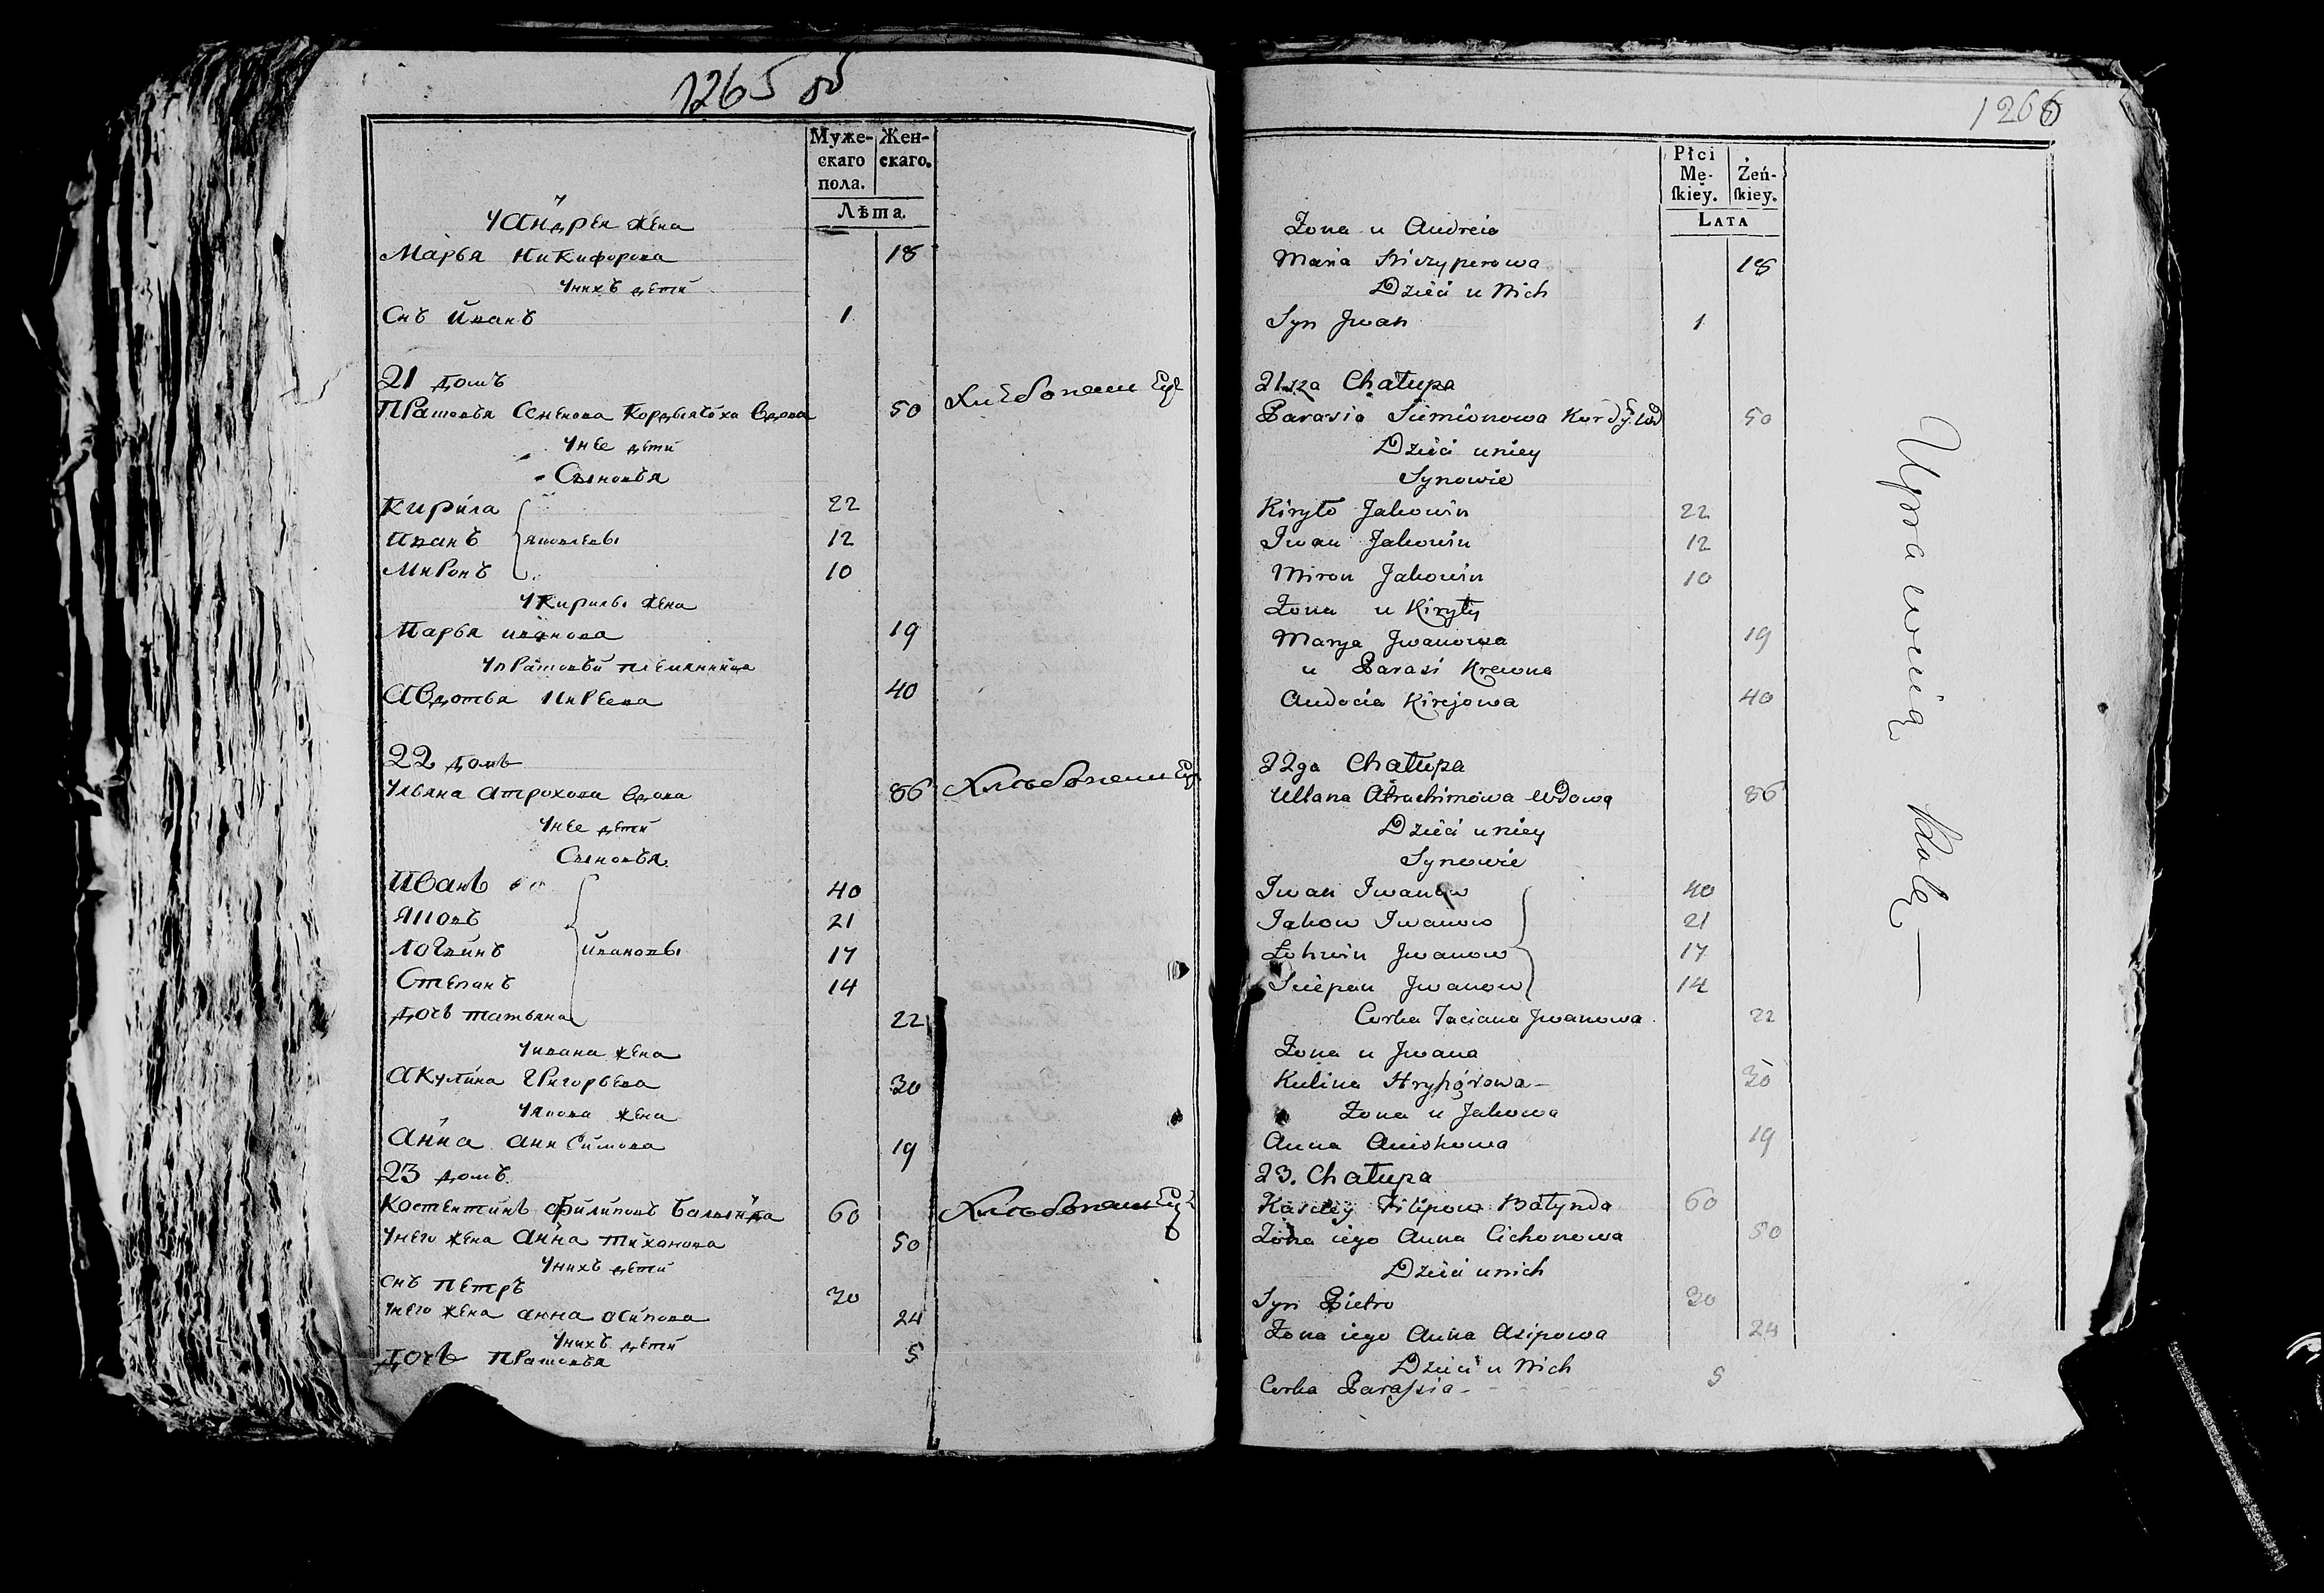 1265 об
Муже-
скаго
пола.
Жен-
скаго.
Лѣта.
У Андрея жена
Марья Никифорова 18
У нихъ дети
Снъ Иванъ 1
21 домъ
Прасковья Семенова вдова 50
У нее дети
Сыновья
Кирила 22
Иванъ Яковлевы 12
Миронъ 10
У Кирилы жена
Марья Иванова 19
У Прасковьи племянница
Авдотья Киреева 40
22 домъ
Ульяна Атрохова вдова 86
У нее дети
Сыновья
Иванъ 40
Яковъ 21
Логвинъ Ивановы 17
Степанъ 14
Дочь Татьяна 22
У Ивана жена
Акулина Григорьева 30
У Якова жена
Анна Анисимова 19
23 домъ
Костентинъ Филиповъ 60
У него жена Анна Тиханова 50
У нихъ дети
Снъ Петръ 30
У него жена Анна Осипова 24
У нихъ дети
Дочь Прасковья 5
1266
Płci
Mę-
ſkiey.
Żeń-
ſkiey.
LATA
Żona u Andreia
Maria Niczyperowa 18
Dzieci u Nich
Syn Jwan 1
21sza Chałupa
Parasia Siemionowa 50
Dzieci u niey
Synowie
Kiryło Jakowin 22
Iwan Jakowin 12
Miron Jakowin 10
Żona u Kiryły
Marya Jwanowa 19
u Parasi Krewna
Audocia Kirejowa 40
22ga Chałupa
Ullana Atrachimowa Wdowa 86
Dzieci u niey
Synowie
Iwan Iwanow 40
Jakow Iwanow 21
Łohwin Jwanow 17
Sciepan Jwanow 14
Corka Taciana Jwanowa 22
Żona u Jwana
Kulina Hryhorowa 30
Żona u Jakowa
Anna Aniskowa 19
23. Chałupa
Filipow Bałynda 60
Żona iego Anna Cichonowa 50
Dzieci u nich
Syn Pietro 30
Żona iego Anna Asipowa 24
Dzieci u Nich
Corka Parassia 5
Uprawuią Rolę